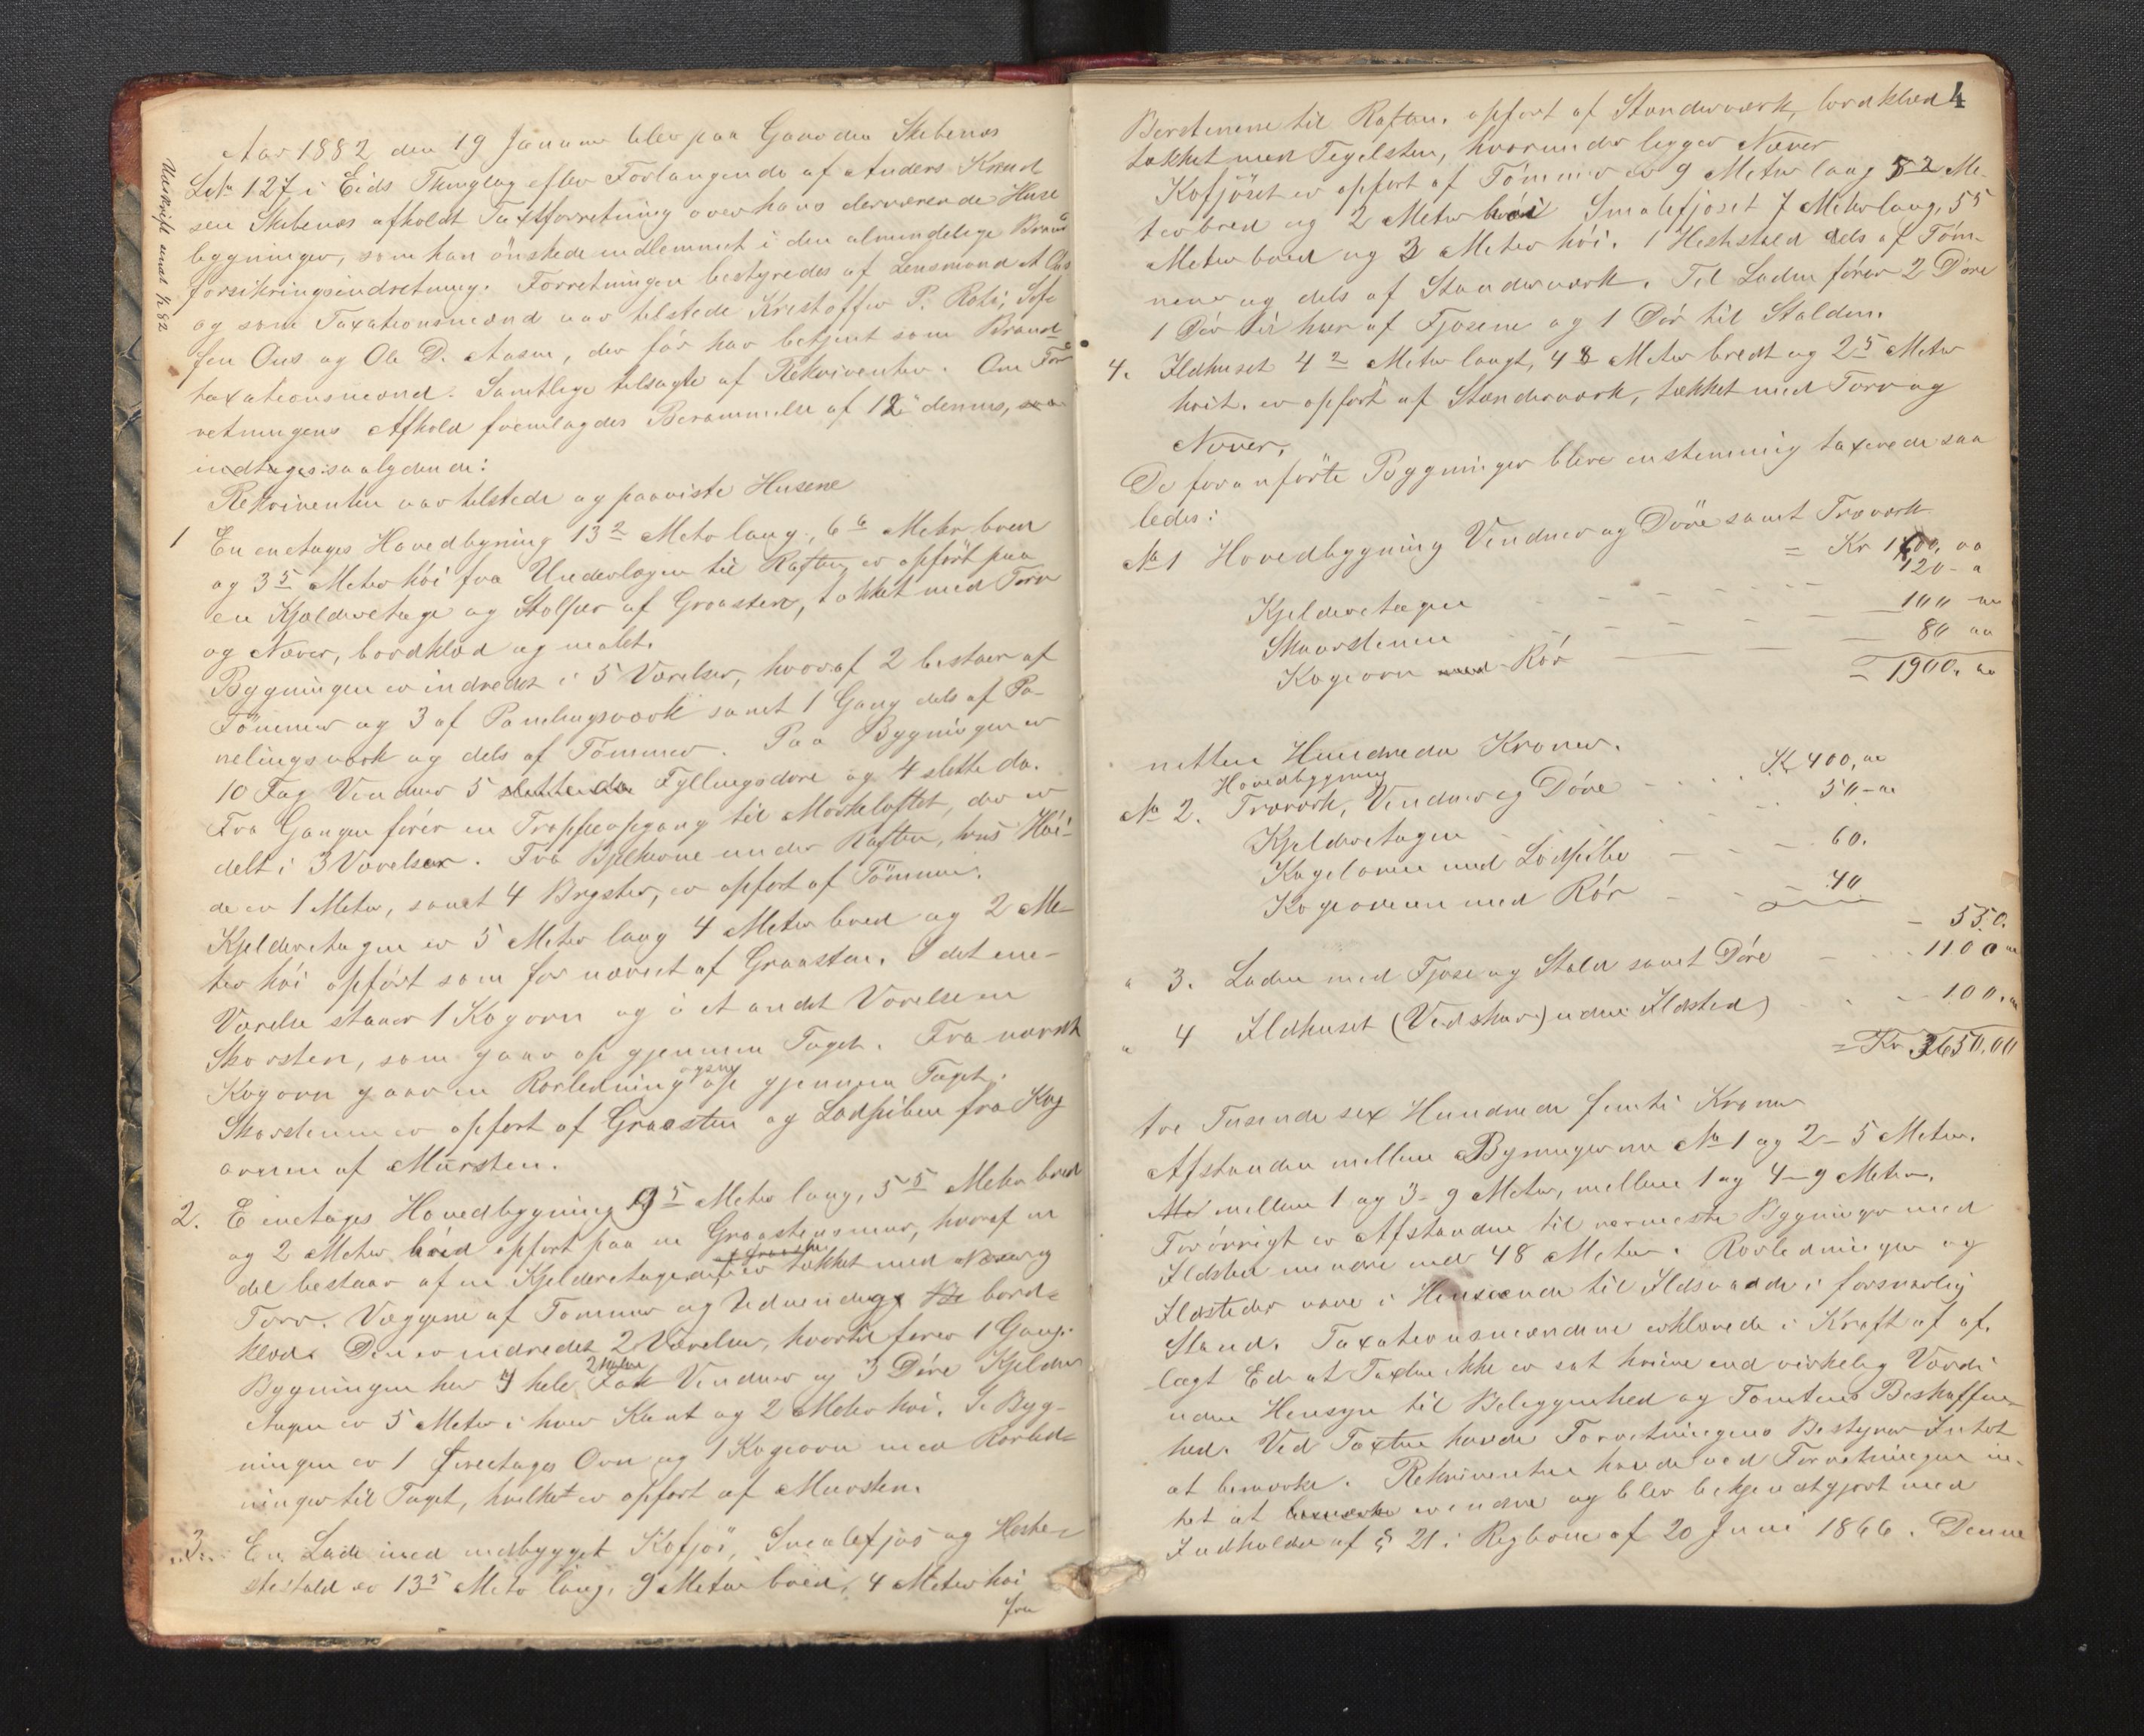 Udskrift sendt ½ 82
Aar 1882 den 19 Januar blev paa Gaarden Skibenæs
L No 127 i Eids Thinglag efter Forlangende af Anders Knud
sen Skibenæs afholdt Taxtforretning over hans derværende Huse
bygninger, som han önskede indlemmet i den almindelige Brand
forsikringsindretning. Forretningen bestyredes af Lensmand A Aas
og som Taxationsmænd var tilstede Kristoffer P. Rabi, Stef
fen Ous og Ole D. Aasen, der før har betjent som Brand
taxationsmænd. Samtlige tilsagte af Rekvirenten. Om For
retningens Afhold fremlagdes Berammelse af 12 dennes, saa
indtages: saalydende:
Rekvirenten var tilstede og paaviste Husene
1 En enetages Hovedbygning 13 2 Meter lang, 6 6 Meter bred
og 3 5 Meter hoi fra Underlagen til Raften, er opfört paa
en Kjælderetage og Stolper af Graasten, takket med Torv
og Næver, bordklæd og malet.
Bygningen er indredet i 5 Værelser, hvoraf 2 bestaar af
Tömmer og 3 af Panelingsværk samt 1 Gang dels af Pa-
nelingsværk og dels af Tömmer. Paa Bygningen er
10 Fag Vinduer 5 Fyllingsdøre og 4 slette do.
Fra Gangen förer en Trappeopgang til Mörkeloftet, der er
delt i 3 Værelser. Fra Bjelkerne under Raften, hvis Höi-
de er 1 Meter, samt 4 Bryster, er opfört af Tömmer.
Kjelderetagen er 5 Meter lang 4 Meter bred og 2 Me-
ter höi opfört som før nævnt af Graasten. I det ene
Værelse staaer 1 Kogovn og i et andet Værelse en
Skorsten, som gaar op gjennem Taget. Fra nævnte
Kogovn gaar en Rorledning ogsaa op gjennem Taget.
Skorstenen er opfört af Graasten og Lodpiben fra Kog
ovnen af Mursten.
2. E enetages Hovedbygning 9 5 Meter lang, 5 5 Meter bred
og 2 Meter höi opfört paa en Graastensmur, hvoraf en
del bestaar af en Kjelderetage af Graasten er takket med Næver og
Torv. Væggene af Tömmer og Udvendige bord-
klæd. Den er indredet 2 Værelser, hvortil förer 1 Gang.
Bygningen har 7 hele 2 halve Fak Vinduer og 3 Döre Kjelder
etagen er 5 Meter i hver Kant og 2 Meter höi. I Byg-
ningen er 1 Ovn og 1 Kogeovn med Rorled-
ninger til Taget, hvilket er opfört af Mursten.
3. En Lade med indbygget Kofjös, Smalefjös og Heste-
stald er 13 5 Meter lang, 9 Meter bred, 4 Meter höi
fra
4
Berstenene til Raften, opfört af Standerværk, bordklæd
takket med Tegelsten, hvorunder ligger Næver
Kofjöset er opfört af Tömmer er 9 Meter lang 5 2 Me-
ter bred og 2 Meter höi Smalefjöset 7 Meter lang, 5 5
Meter bred og 2 Meter höi. 1 Heststald dels af Töm-
mer og dels af Standerværk. Til Laden förer 2 Döre
1 Dör til hver af Fjösene og 1 Dör til Stalden.
4. Ildhuset 4 2 Meter langt, 4 8 Meter bredt og 2 5 Meter
höit, er opfört af Standerværk, takket med Torv og
Næver.
De foranförte Bygninger bleve enstemmig taxerede saa
ledes:
No 1 Hovedbygning Vinduer og Döre samt Træværk
= Kr 1600, 00
Kjelderetagen 120 - 00
Skorstenen 100 - 00
Kogeovn med Rör 80 00
= 1900. 00
nitten Hundrede Kroner.
No 2. Hovedbygning Træværk, Vinduer og Döre Kr 400, 00
Kjelderetagen 50 - 00
Kogeovnen med Lodpibe 60.
Kogeovnen med Rör 40
- 550.
" 3. Laden med Fjöse og Stalde samt Döre 1100 00
" 4 Ildhuset (Vedskur) uden Ildsted 100. 00
= Kr. 3650.00
tre Tusende sex Hundrede femti Kroner
Afstanden mellem Bygningerne No 1 og 2 - 5 Meter.
mellem 1 og 3 - 9 Meter, mellem 1 og 4 - 9 Meter.
Forövrigt er Afstanden til nærmeste Bygninger med
Ildsted mindre end 48 Meter. Rorledninger og
Ildsteder vare i Henseende til Ildsvaade i forsvarlig
Stand. Taxationsmændene erklærede i Kraft af af-
lagt Ed at Taxten ikke er sat höiere end virkelig Værdi
uden Hensyn til Beliggenhed og Tomtens Beskaffen-
hed. Ved Taxten havde Forretningens Bestyrer Intet
at bemærke. Rekvirenten havde ved Forretningen in-
tet at erindre og blev bekjendtgjort med
Indholdet af § 21 i Regl af 20 Juni 1866. Denne